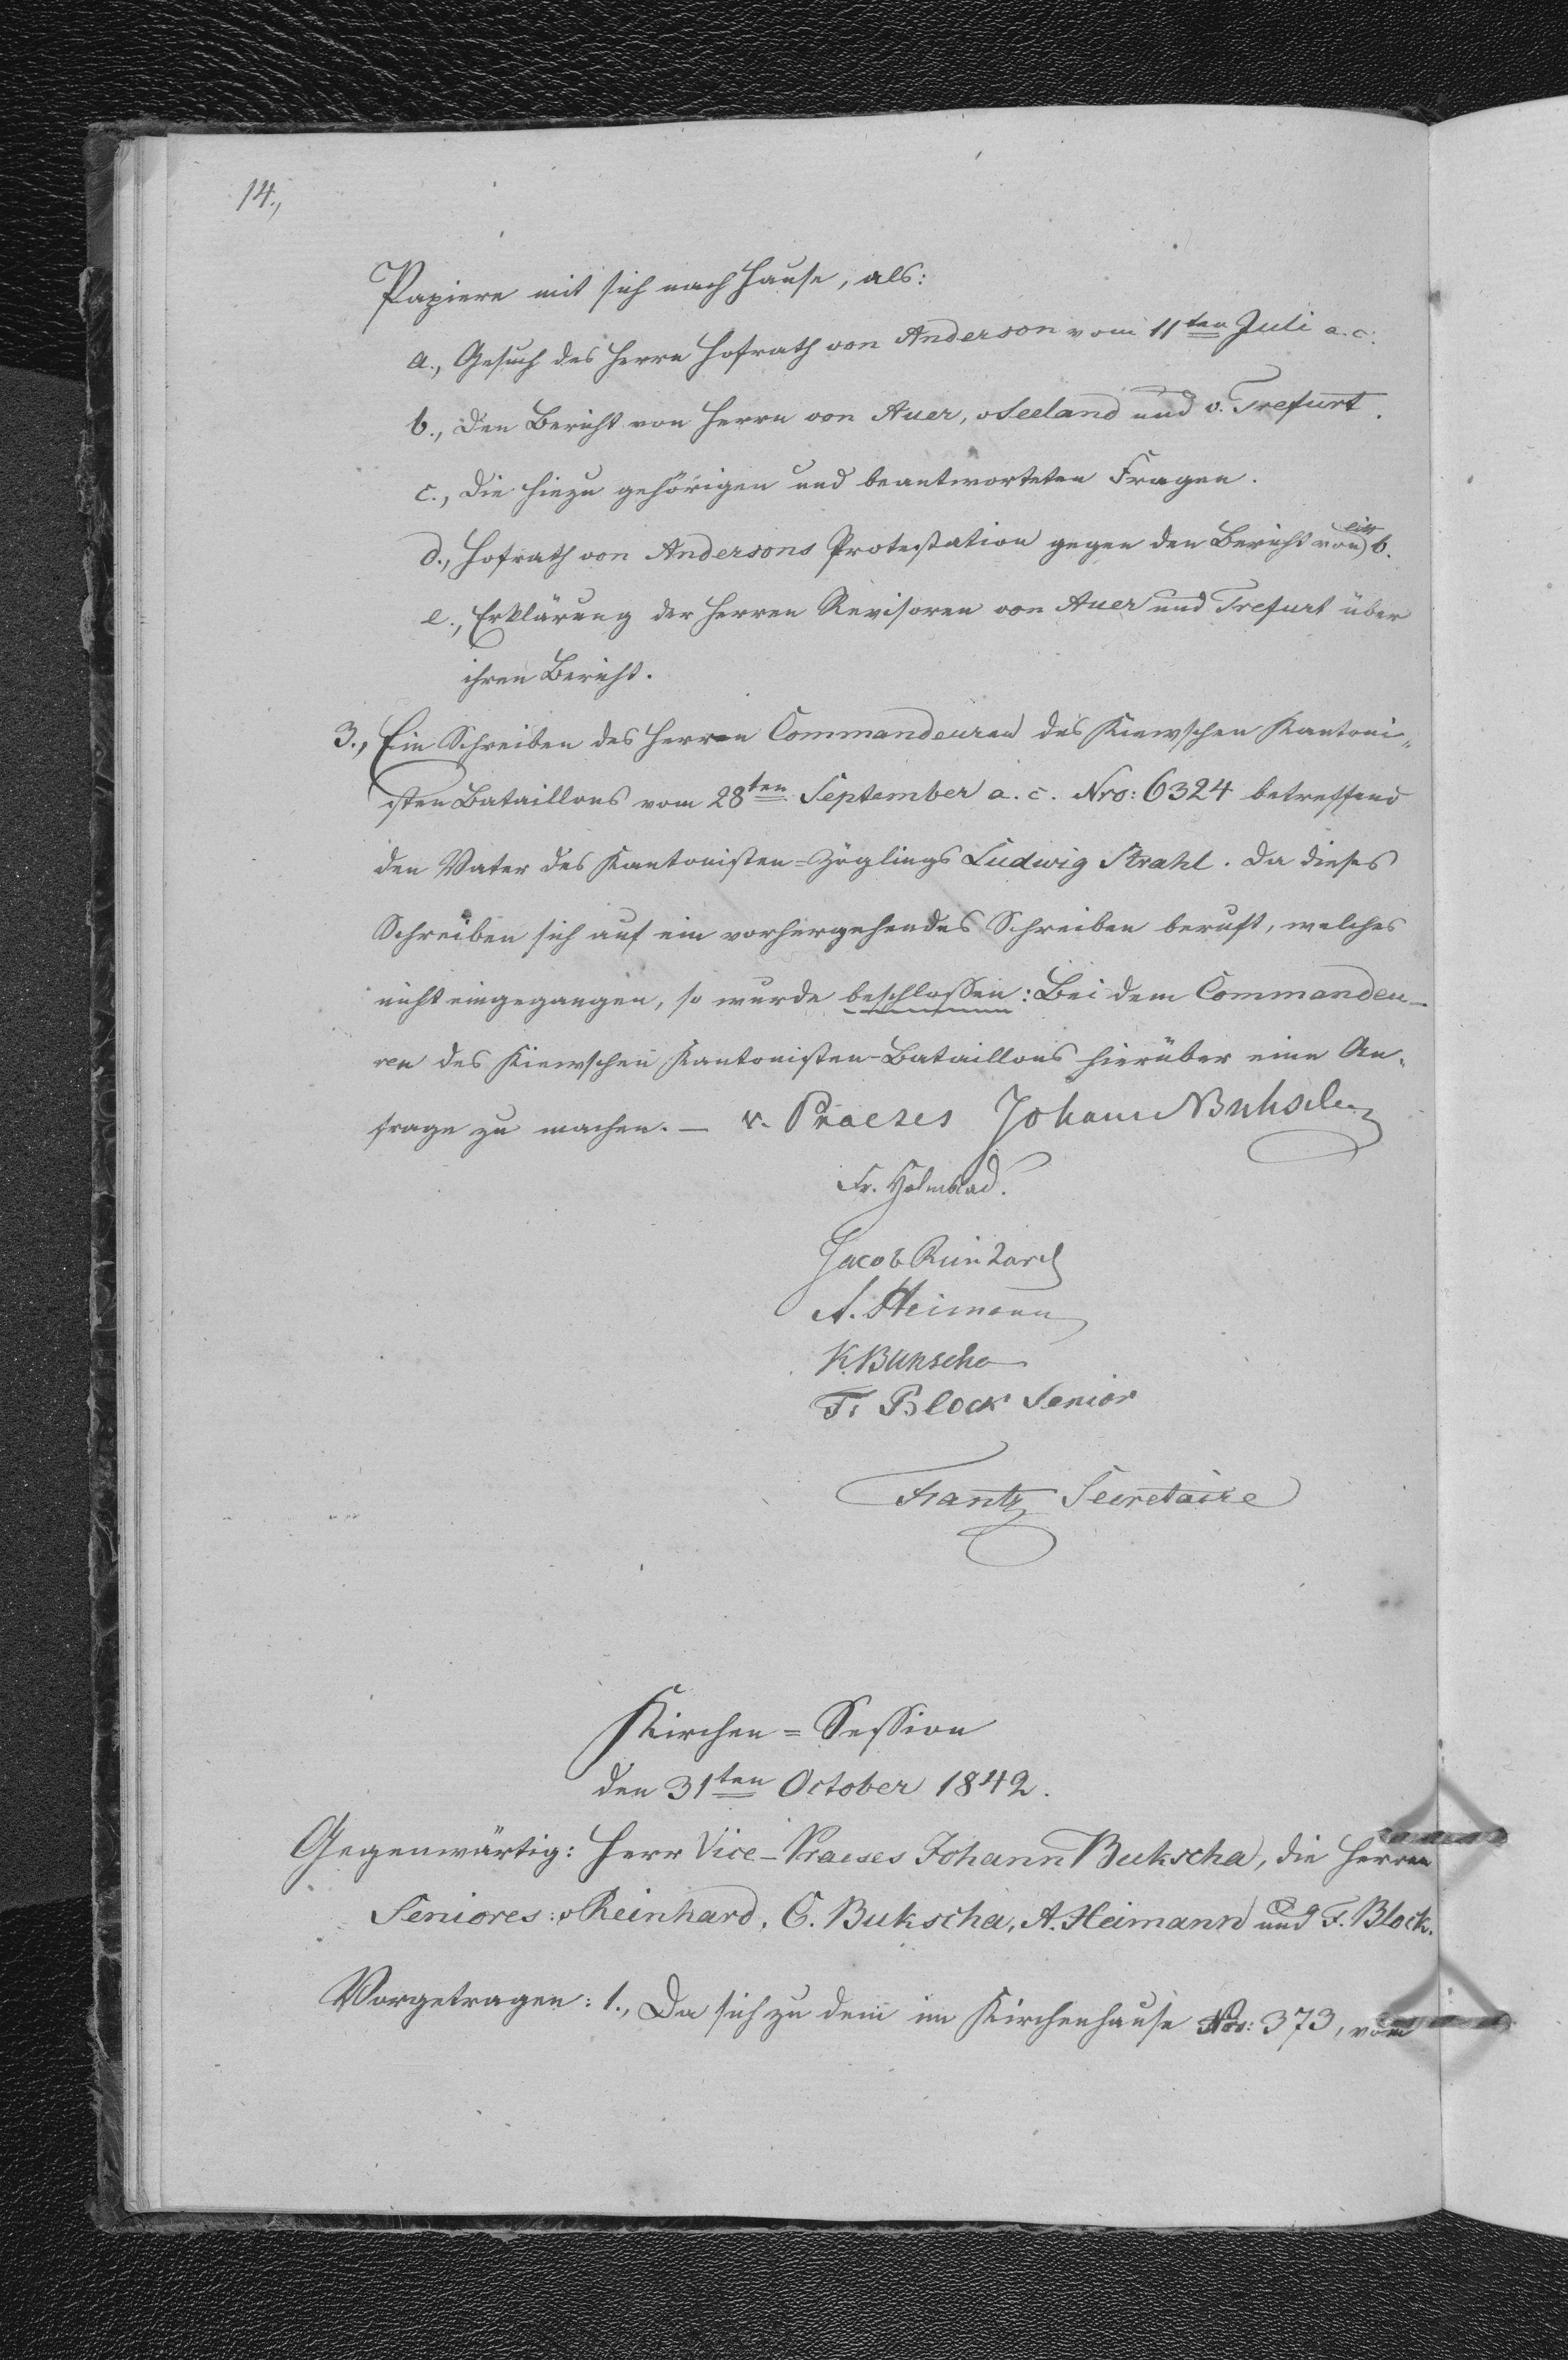 14.,
Papiere mit sich nach Hause, als:
a., Gesuch des Herrn Hofrath von Anderson vom 11ten Juli a. c.
b., Den Bericht von Herrn von Auer, v Seeland und v. Trefurt.
c., Die hiezu gehörigen und beantworteten Fragen.
d., Hofrath von Andersons Protestation gegen den Bericht von lit b.
e., Erklärung der Herren Revisoren von Auer und Trefurt über
ihren Bericht.
3., Ein Schreiben des Herren Commandeuren des Kiewschen Kantoni„
sten Bataillons vom 28ten September a. c. Nro: 6324 betreffend
den Vater des Kantonisten=Zöglings Ludwig Strahl. Da dieses
Schreiben sich auf ein vorhergehendes Schreiben beruft, welches
nicht eingegangen, so wurde beschlossen: Bei dem Commandeu-
ren des Kiewschen Kantonisten-Bataillons hierüber eine An-
frage zu machen. — v. Praeses Johann Buksch
Fr. Holmblad.
Jacob Reinhard
A. Heimann
K. Bukscha
F. Block Senior
Frantz Secretaire
Kirchen=Session
den 31ten October 1842.
Gegenwärtig: Herr Vice-Praeses Johann Bukscha, die Herren
Seniores: v Reinhard, C. Bukscha, A. Heimann und F. Block.
Vorgetragen: 1., Da sich zu dem im Kirchenhause Nro: 373, vom